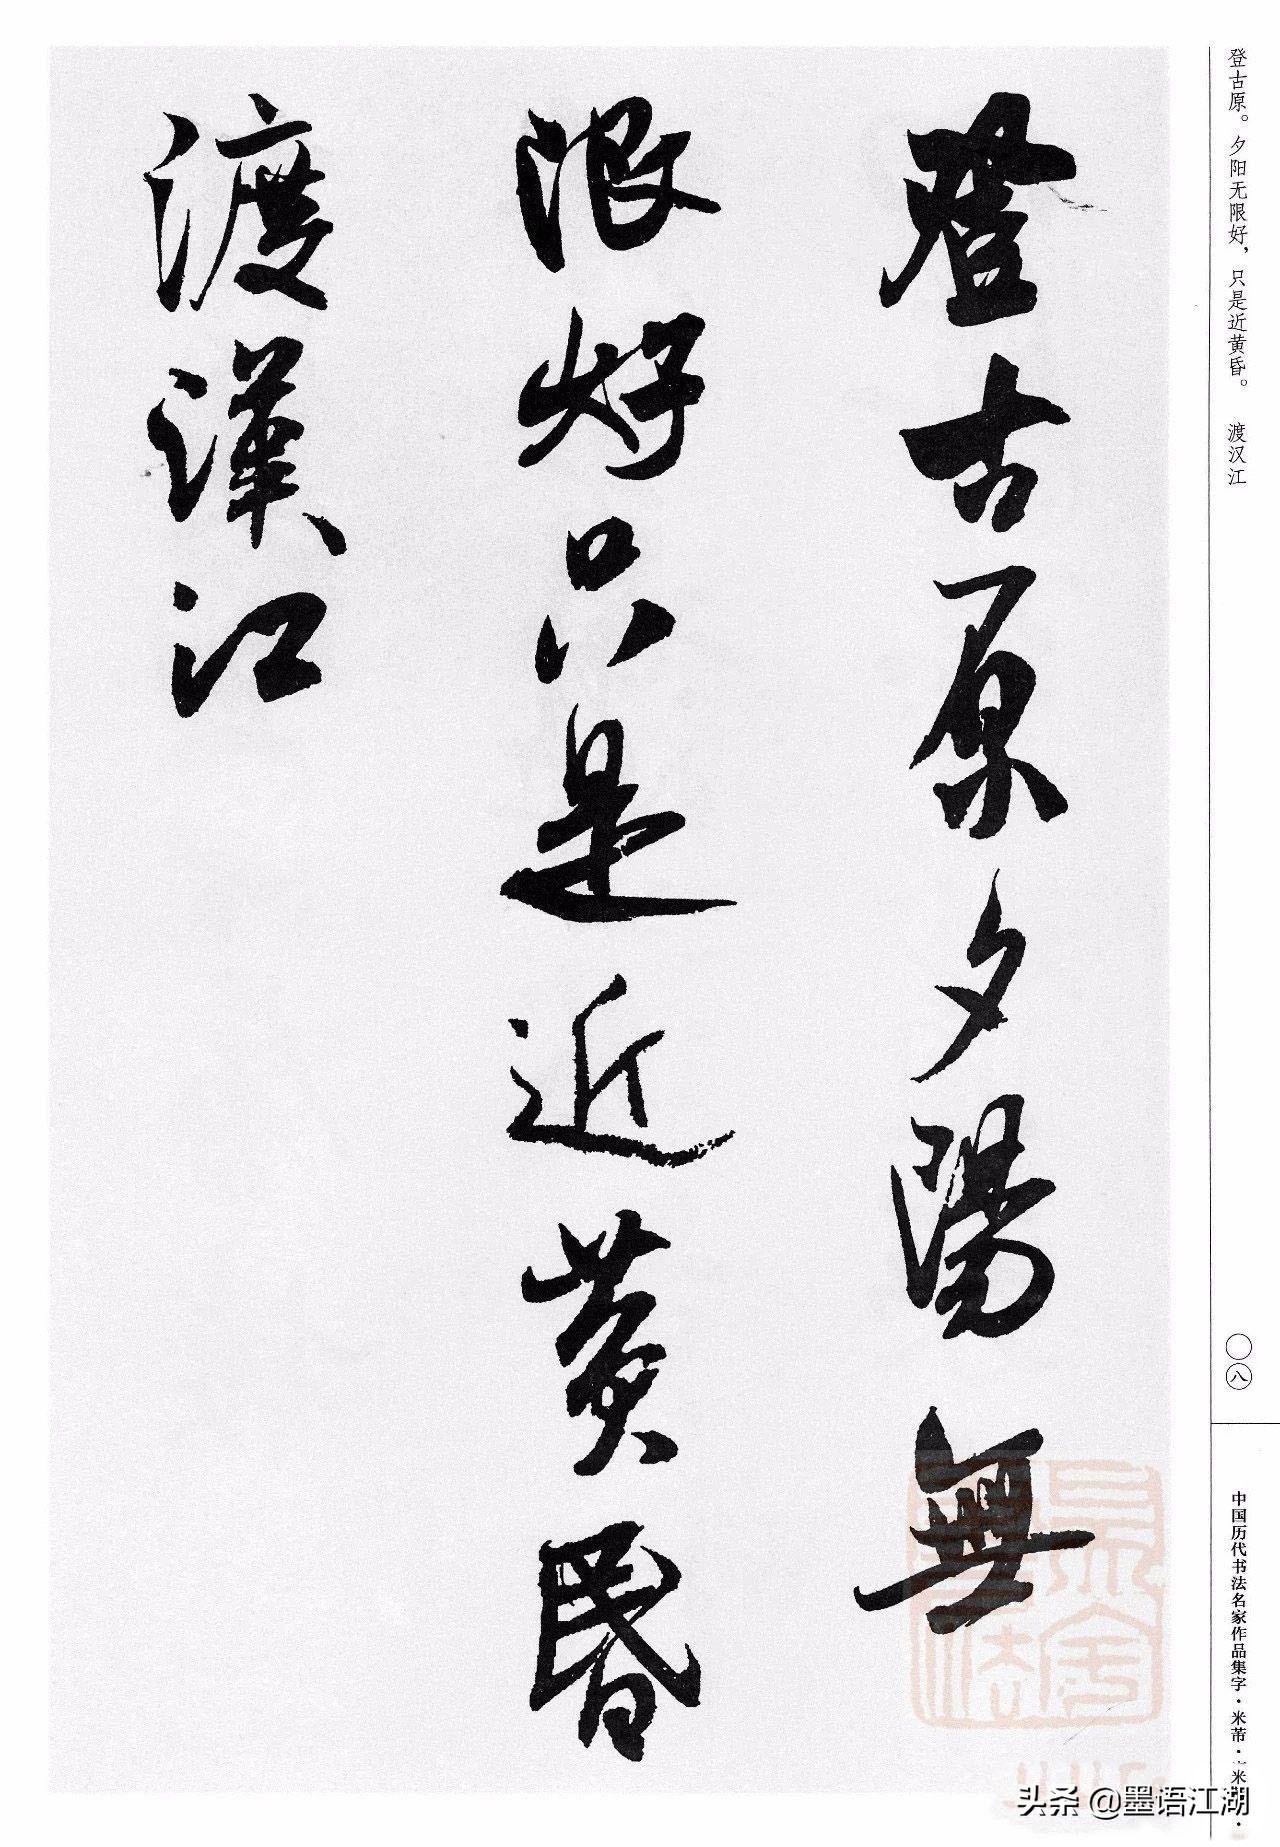 登古原。夕阳无限好，只是近黄昏。 渡汉江
登古原夕陽無
限好只是近黄昏
渡漢江
〇八
中国历代书法名家作品集字·米芾·
头条@墨语江湖